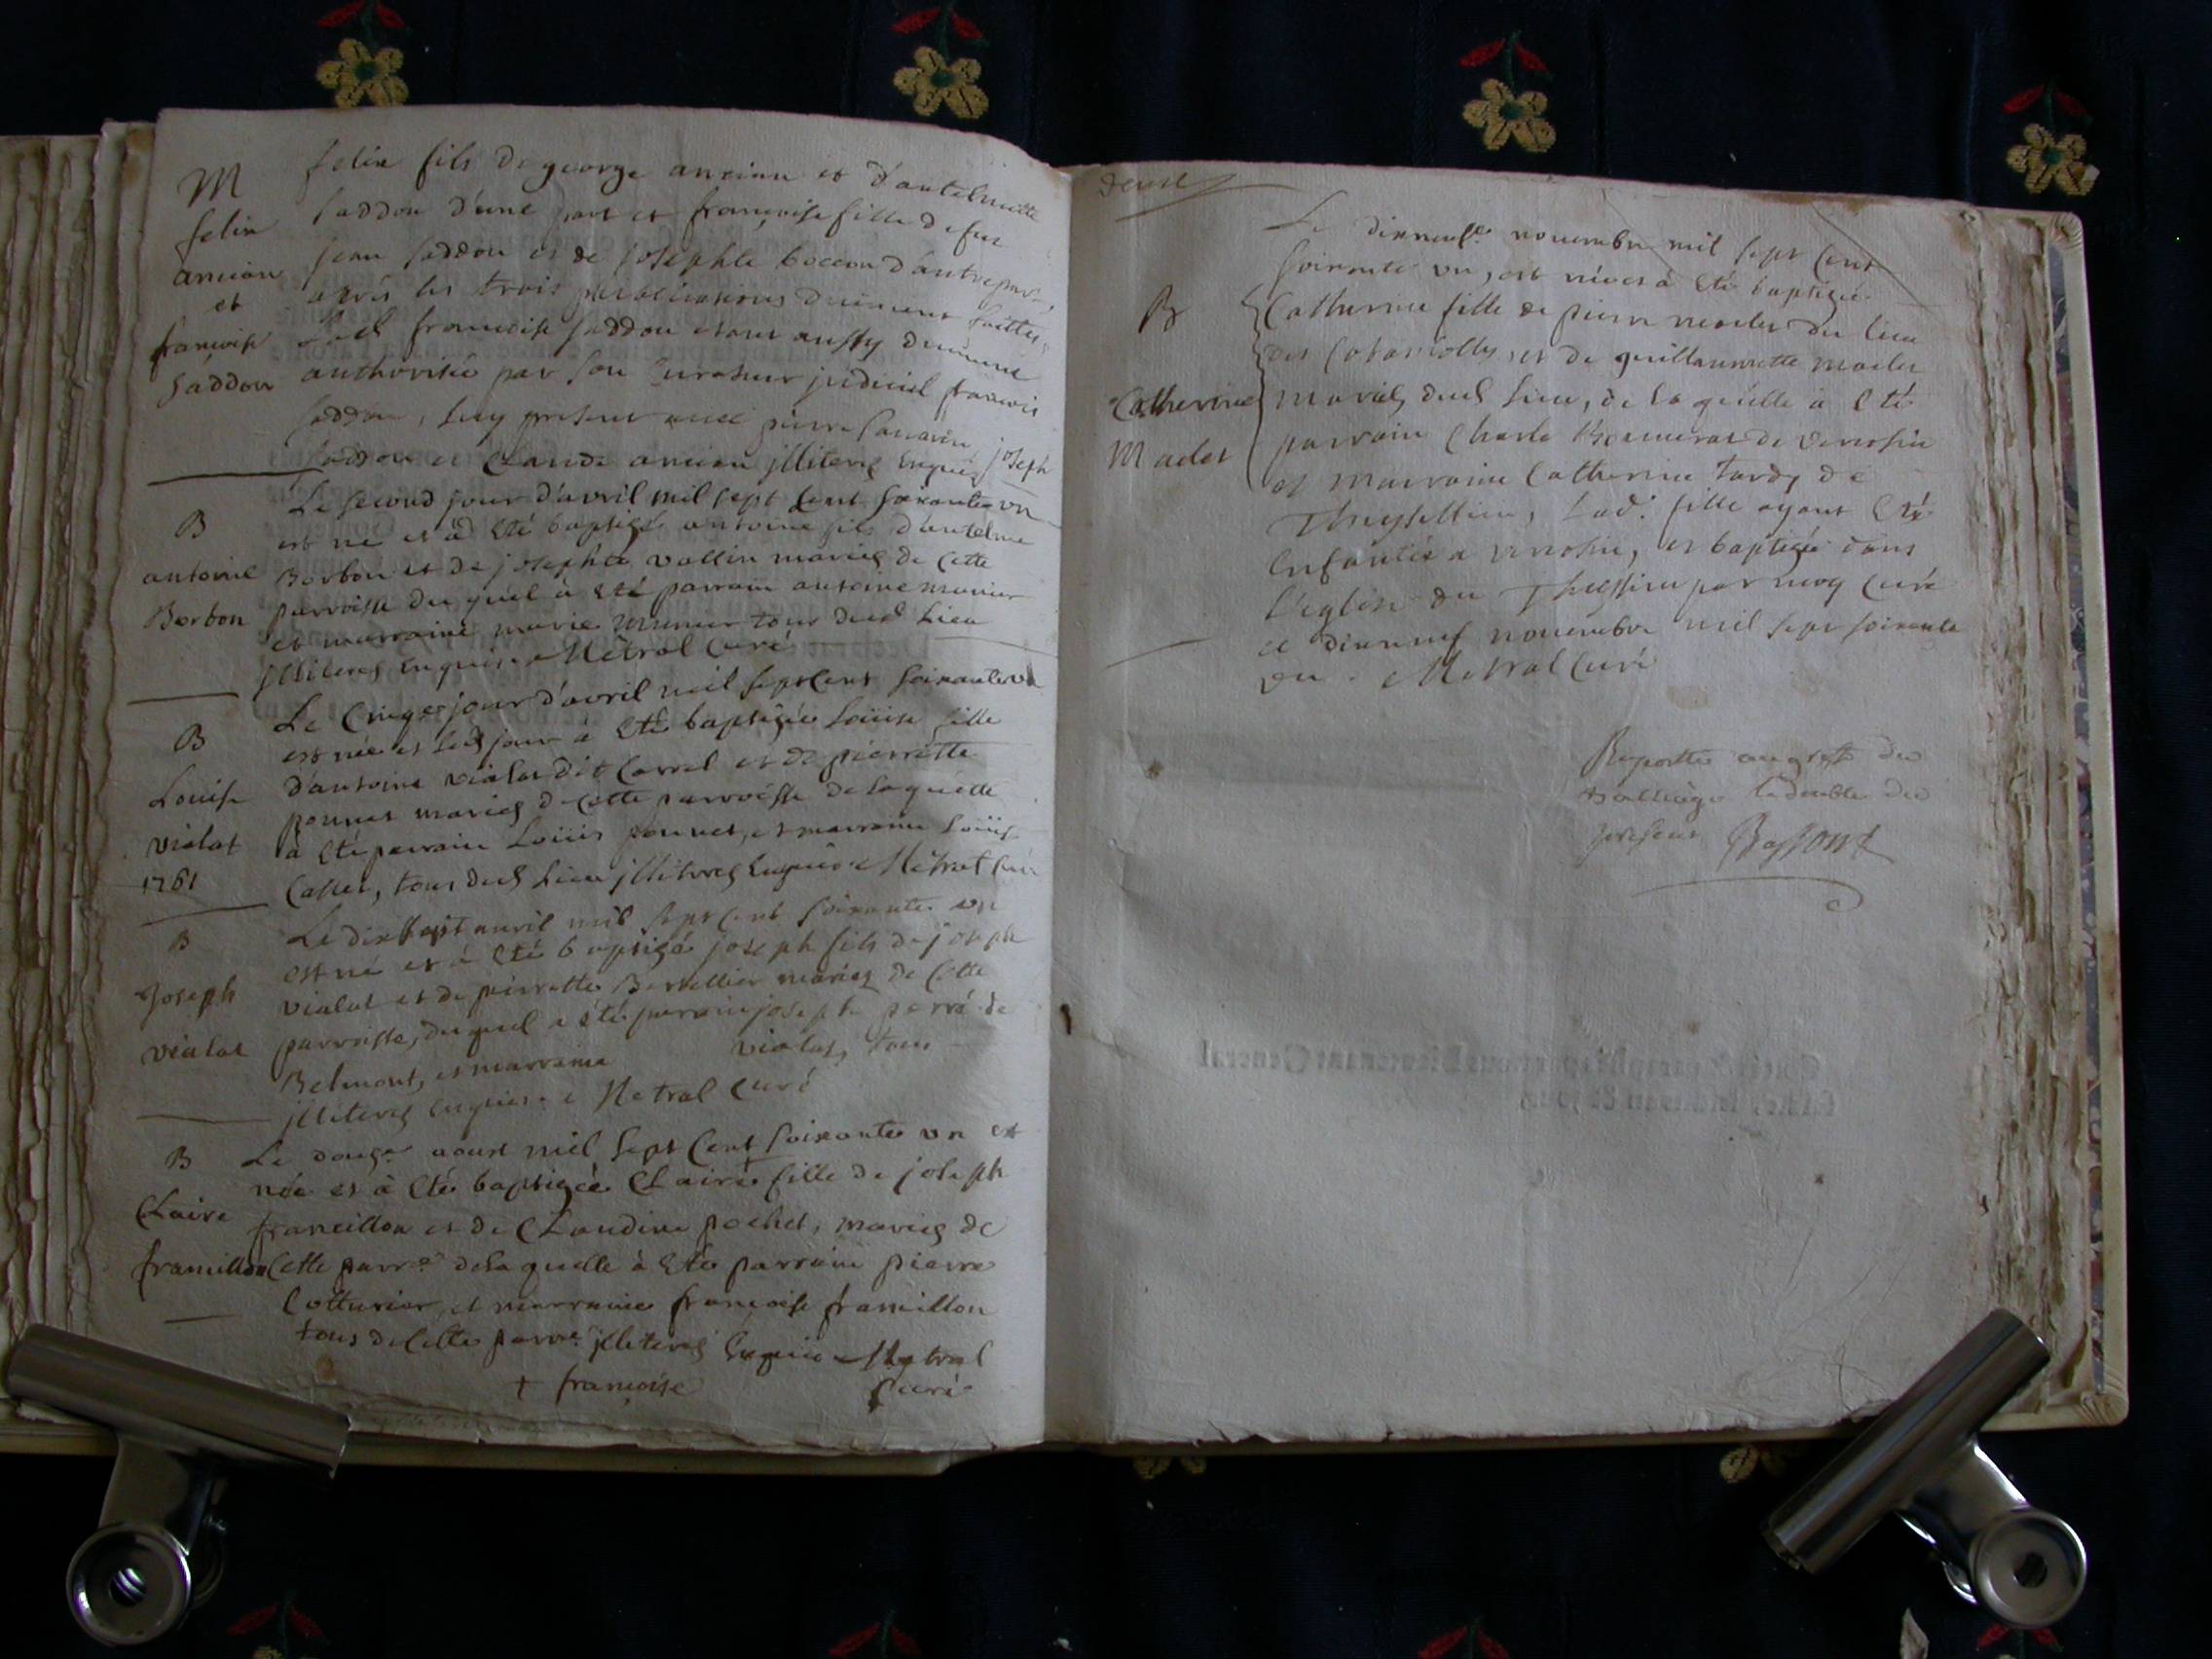 M
felix
ancian
et
françoise
Saddou
felix fils de george ancian et d'antelmette
Saddou d'une part et françoise fille de feu
jean Saddou et de josephte boccon d'autre part,
après les trois publications duement faittes,
lad françoise Saddou etant aussy duement
authorisée par son Curateur judiciel françois
Saddou, luy present avec pierre joseph
Saddou et Claude ancian jlliterés Enquis
B
antoine
Borbon
Le second jour d'avril mil sept Cent soixante un
est né et à Eté baptizé antoine fils d'antelme
Borbon et de josephte vallin mariés de Cette
parroisse du quel à Eté parrain antoine munier
et marraine marie munier tous dud Lieu
jlliterés Enquis. Métral Curé
B
Louise
vialat
1761
Le Cinqe jour d'avril mil sept Cent soixante un
est née et led jour à Eté baptizée Loüise fille
d'antoine vialat dit Carrel et de pierrette
ponnet mariés de Cette parroisse de la quelle
à Eté parrain Loüis ponnet, et marraine Loüise
Caller, tous dud Lieu jlliterés Enquis. Métral Curé
B
Joseph
vialat
Le dix huit avril mil sept Cent soixante un
est né et à Eté baptizé joseph fils de joseph
vialat et de pierrette Bertellier mariés de Cette
parroisse, du quel a été parrain joseph perré de
Belmont, et marraine vialat, tous
jlliterés Enquis. Metral Curé
B
Claire
francillon
Le douze aoust mil sept Cent soixante un est
née et à Eté baptizée Claire + fille de joseph
francillon et de Claudine pochet, mariés de
Cette parre de la quelle à Eté parrain pierre
Cotturier, et marraine françoise francillon
tous de Cette parre jlliterés Enquis Metral
+ françoise Curé
deuse
B
Catherine
Mader
Le dixneufe novembre mil sept Cent
soixante un, est née et à Eté baptizée
Catherine fille de pierre mader du lieu
des et de guillaumette mader
mariés dud Lieu, de la quelle à Eté
parrain Charle de virosin
et marraine Catherine tardy de
Theysellieu, Lad. fille ayant Eté
Enfantée a virosin, et baptizée dans
l'eglise du Theyssieu par moy Curé
le dixneuf novembre mil sept soixante
un. Metral Curé
Raporté au greffe du
Balliage le double du
present